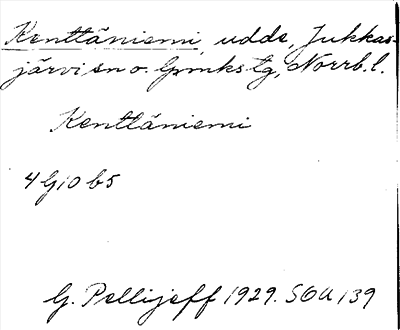 Kenttäniemi, udde, Jukkas-
järvi sn o. Gpmkstg, Norrb. l.
Kenttäniemi
4 G 10 b 5
G. Pellijeff 1929. SOU 139